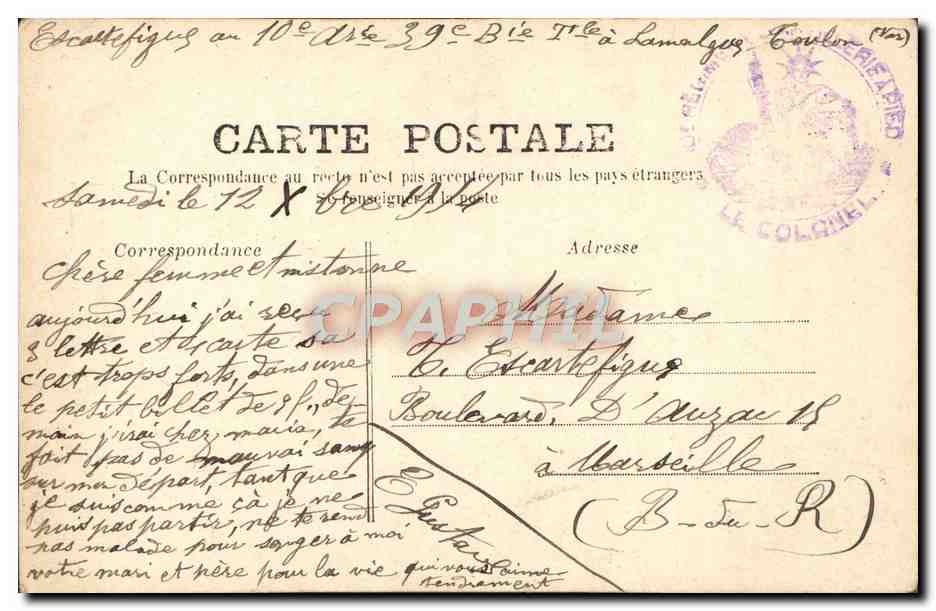 Escartefigue au 10e Arie 39e Bie Tle à Lamalgue Toulon (Var)
LE COLONEL
CARTE POSTALE
La Correspondance au recto n'est pas acceptée par tous les pays étrangers
Se renseigner à la poste
Samedi le 12 Xbre 1914
Correspondance
Adresse
chère femme et
aujourd'hui j'ai recu
3 lettre et 1 carte sa
c'est trops forts, dans une
le petit billet de 5f, de
main j'irai chez maria, te
fait pas de mauvai sang
sur mon départ, tant que
je suis comme çà je ne
puis pas partir, ne te rend
pas malade pour songer à moi
votre mari et père pour la vie qui vous aime
tendrament
E Gustave
Madame
T. Escartefigue
Boulevard, D'Auzac 15
à Marseille
(B-du-R)
CPAPHIL